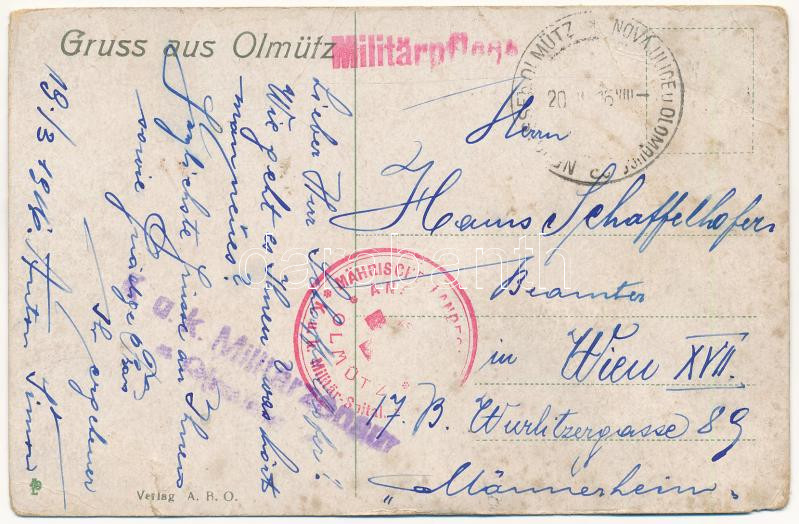 Gruss aus Olmütz
Militärpflege
OLMÜTZ * NOVÁ ULICE u OLOMOUCE
20
Herrn
Hans Schaffelhofer
Beamter
in Wien XVII.
17. B. Wurlitzergasse 89
„Männerheim"
MÄHRISCHE LANDES
OLMÜTZ
k.u.k. Militär-Spital
k. Militärzensur
19./3 1916.
Lieber Herr Schaffelhofer!
Wie geht es Ihnen was hört
man neues?
Herzlichste Grüsse an Ihnen
sowie
gnädige Frau
Ihr ergebener
Anton Simon
Verlag A. B. O.